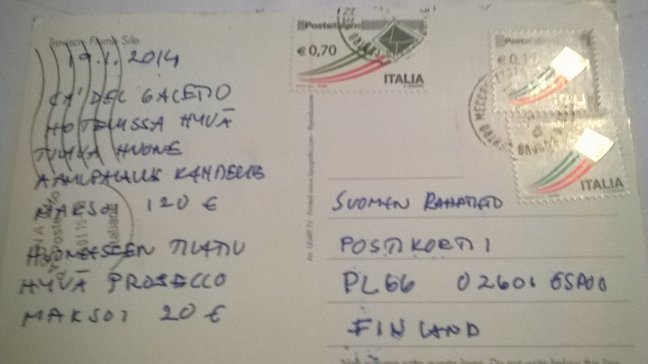 Treviso Fiume Sile
19.1.2014
CA' DEL GALETTO
HOTELISSA HYVÄ
TILAVA HUONE
AAMUPALALLE KAHDELLE
MAKSOI 120 €
HUONEESEEN TILATTU
HYVÄ PROSECCO
MAKSOI 20 €
Posteitaliane
€ 0,70
ITALIA
Posteitaliane
€ 0,1
ITALIA
SUOMEN RAHATIETO
POSTIKORTTI
PL66 02601 ESPOO
FINLAND